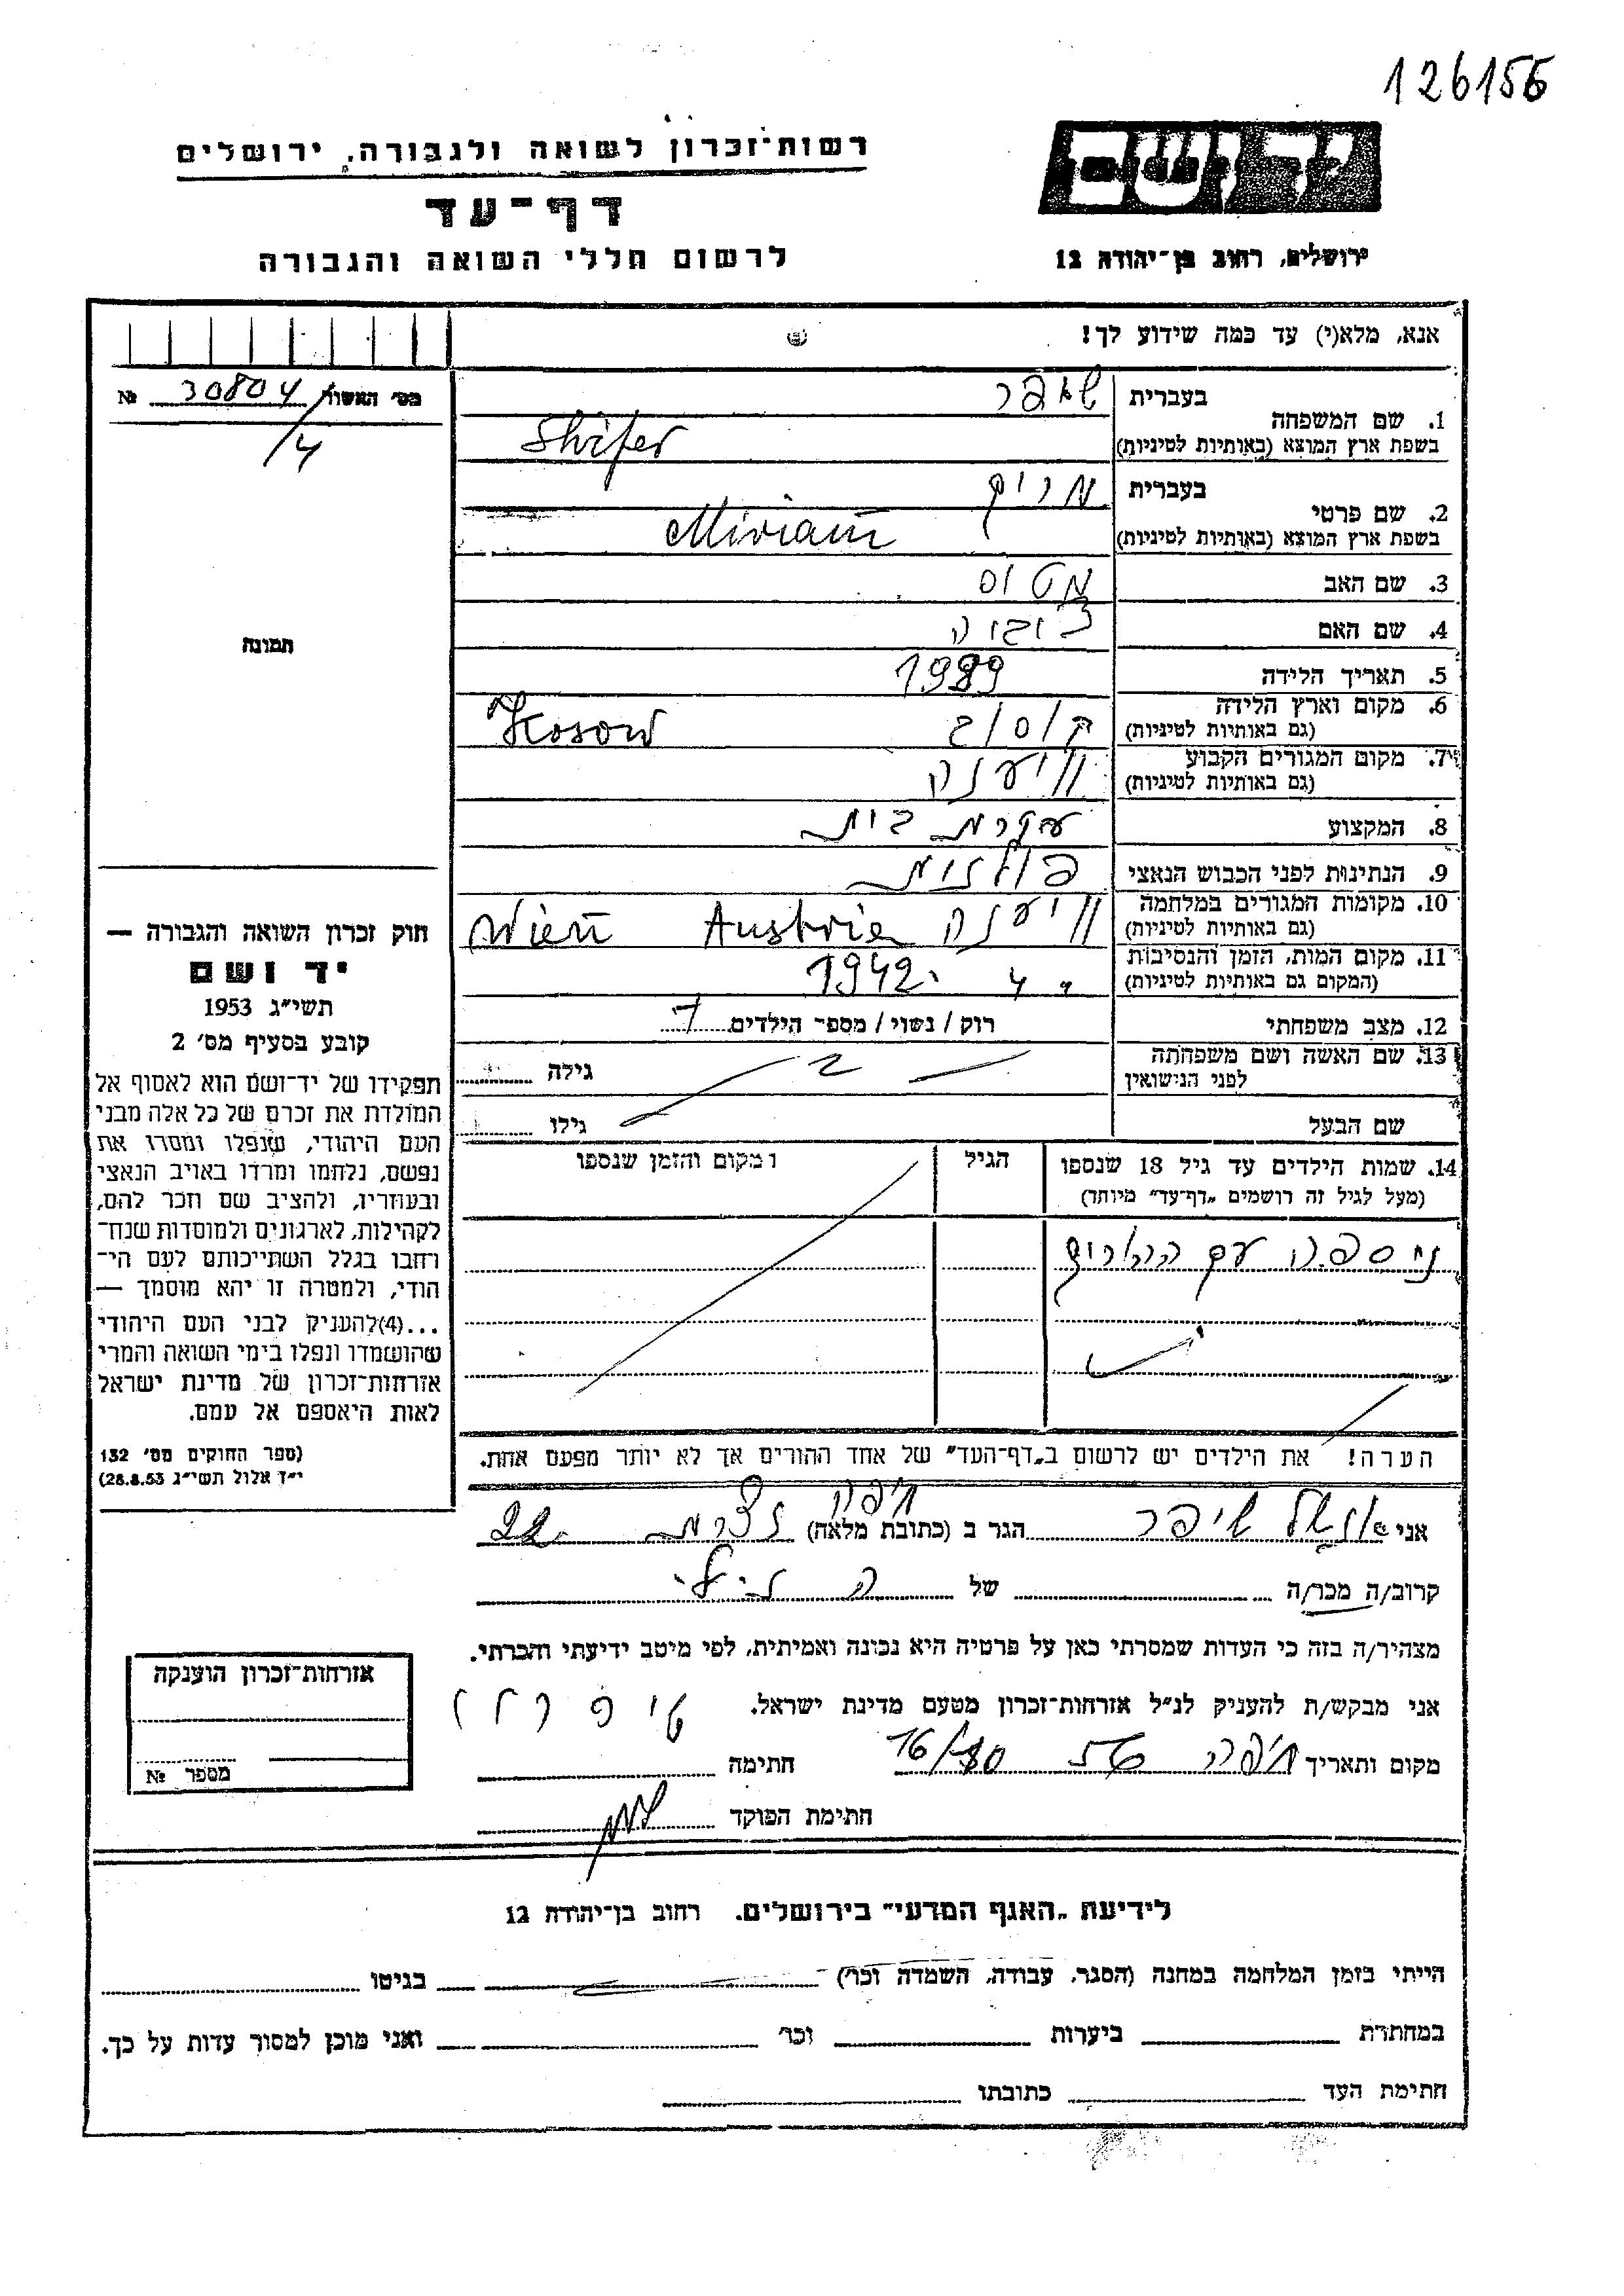 126156
רשות־זכרון לשואה ולגבורה, ירושלים
יד ושם
דף־עד
לרשום חללי השואה והגבורה
ירושלים, רחוב בן־יהודה 12
אנא, מלא(י) עד כמה שידוע לך!
מס׳ האשור 30804 №
/4
1. שם המשפחה
בעברית שיפר
בשפת ארץ המוצא (באותיות לטיניות) Shifer
2. שם פרטי
בעברית מרים
בשפת ארץ המוצא (באותיות לטיניות) Miriam
3. שם האב
4. שם האם
5. תאריך הלידה
6. מקום וארץ הלידה
(גם באותיות לטיניות) קוסוב Kosow
7. מקום המגורים הקבוע
(גם באותיות לטיניות) ויענה
8. המקצוע עקרת בית
9. הנתינות לפני הכבוש הנאצי פולנית
10. מקומות המגורים במלחמה
(גם באותיות לטיניות) ויענה Austria Wien
11. מקום המות, הזמן והנסיבות
(המקום גם באותיות לטיניות) 1942
12. מצב משפחתי רוק / נשוי / מספר הילדים
13. שם האשה ושם משפחתה
לפני הנישואין גילה
שם הבעל גילו
14. שמות הילדים עד גיל 18 שנספו
(מעל לגיל זה רושמים „דף־עד״ מיוחד)
הגיל
ומקום והזמן שנספו
ניספה עם ההורים
הערה! את הילדים יש לרשום ב„דף־העד״ של אחד ההורים אך לא יותר מפעם אחת.
תמונה
חוק זכרון השואה והגבורה —
יד ושם
תשי״ג 1953
קובע בסעיף מס׳ 2
תפקידו של יד־ושם הוא לאסוף אל
המולדת את זכרם של כל אלה מבני
העם היהודי, שנפלו ומסרו את
נפשם, נלחמו ומרדו באויב הנאצי
ובעוזריו, ולהציב שם וזכר להם,
לקהילות, לארגונים ולמוסדות שנח־
רחבו בגלל השתייכותם לעם הי־
הודי, ולמטרה זו יהא מוסמך —
...(4)להעניק לבני העם היהודי
שהושמדו ונפלו בימי השואה והמרי
אזרחות־זכרון של מדינת ישראל
לאות היאספם אל עמם.
(ספר החוקים מס׳ 132
י״ד אלול תשי״ג 28.8.53)
אני שיפר הגר ב (כתובת מלאה) חיפה נצרת 22
קרוב/ה מכר/ה של
מצהיר/ה בזה כי העדות שמסרתי כאן על פרטיה היא נכונה ואמיתית, לפי מיטב ידיעתי והכרתי.
אני מבקש/ת להעניק לנ״ל אזרחות־זכרון מטעם מדינת ישראל.
מקום ותאריך חיפה חתימה
חתימת הפוקד
אזרחות־זכרון הוענקה
מספר №
לידיעת „האגף המדעי״ בירושלים. רחוב בן־יהודת 12
הייתי בזמן המלחמה במחנה (הסגר, עבודה, השמדה וכו׳) בגיטו
במחתרת ביערות וכו׳ ואני מוכן למסור עדות על כך.
חתימת העד כתובתו